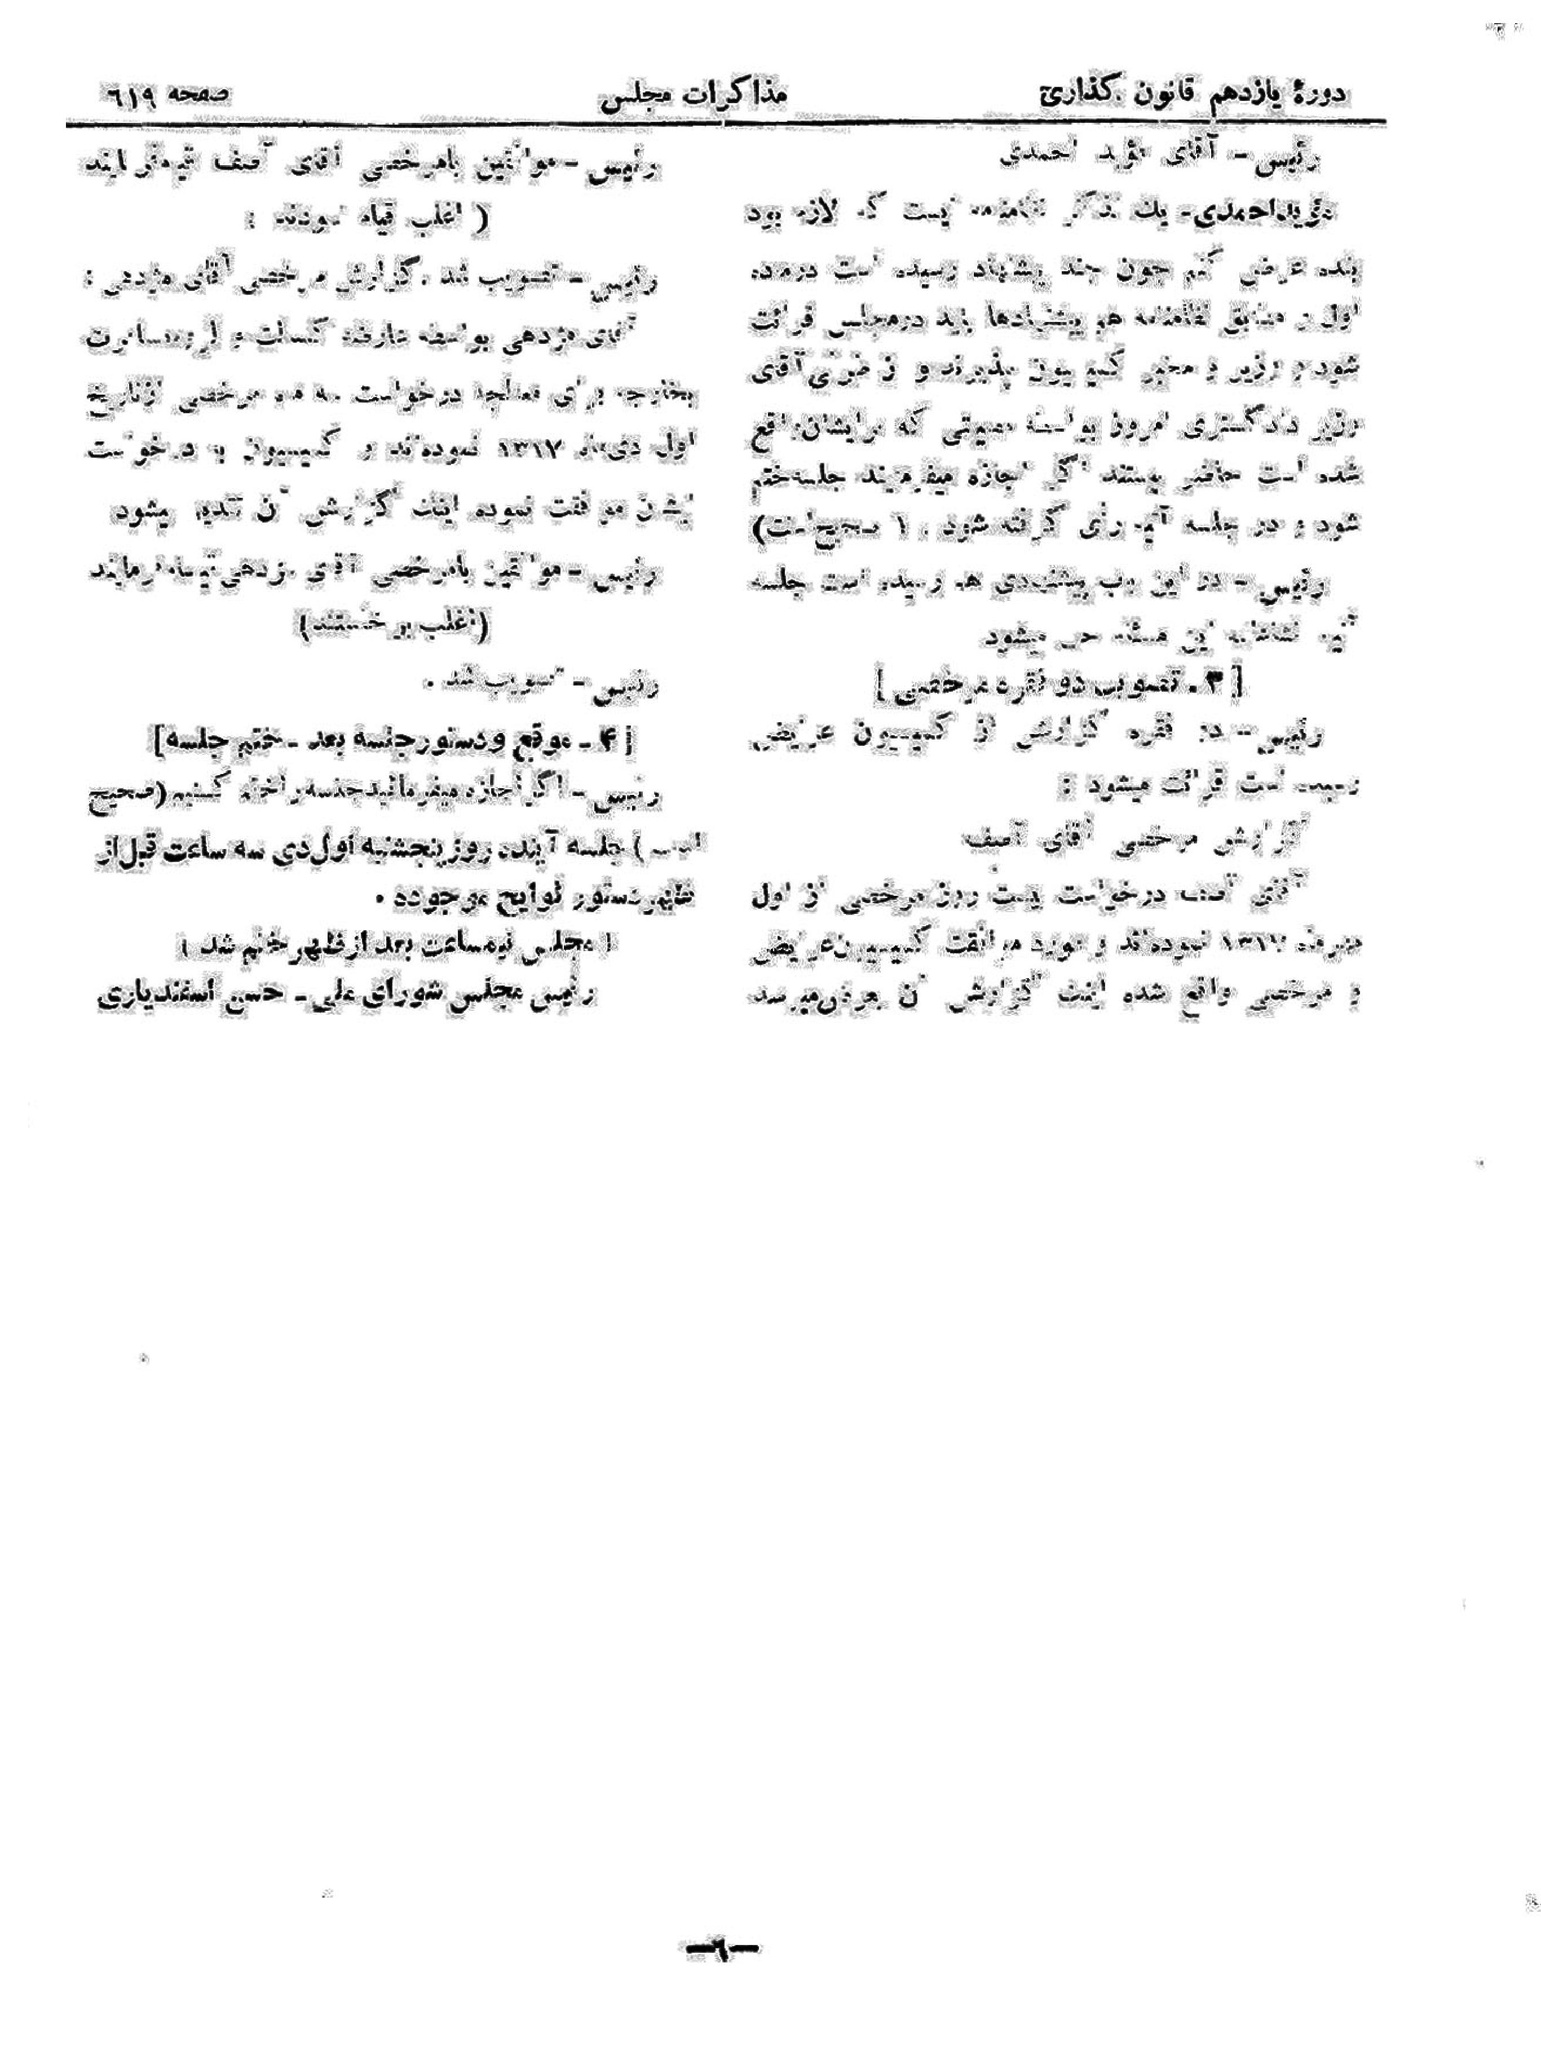 دورهٔ یازدهم قانون گذاری
مذاکرات مجلس
صفحه ٦١٩
رئیس - آقای مؤید احمدی
مؤید احمدی - یك تذکر نظامنامه ایست که لازم بود
بنده عرض کنم چون چند پیشنهاد رسیده است در ماده
اول و مطابق نظامنامه هم پیشنهادها باید در مجلس قرائت
شود و وزیر و مخبر کمیسیون بپذیرند و آقای
وزیر دادگستری امروز بواسطه مصیبتی که برایشان واقع
شده است حاضر نیستند اگر اجازه میفرمایند جلسه ختم
شود و در جلسه آتیه رأی گرفته شود . ( صحیح است)
رئیس - در این باب پیشنهادی هم رسیده است جلسه
آتیه انشاءالله این مسئله حل میشود
[ ۳ - تصویب دو فقره مرخصی ]
رئیس - دو فقره گزارش از کمیسیون عرایض
رسیده است قرائت میشود :
گزارش مرخصی آقای آصف
آقای آصف درخواست بیست روز مرخصی از اول
١٣١٧ نموده‌اند و مورد موافقت کمیسیون عرایض
و مرخصی واقع شده اینك گزارش آن بعرض میرسد
رئیس - موافقین با مرخصی آقای آصف قیام فرمایند
( اغلب قیام نمودند )
رئیس - تصویب شد . گزارش مرخصی آقای مژدهی :
آقای مژدهی بواسطه عارضه کسالت و لزوم مسافرت
بخارجه برای معالجه درخواست سه ماه مرخصی از تاریخ
اول دی‌ماه ١٣١٧ نموده‌اند و کمیسیون با درخواست
ایشان موافقت نموده اینك گزارش آن تقدیم میشود
رئیس - موافقین با مرخصی آقای مژدهی قیام فرمایند
(اغلب برخاستند)
رئیس - تصویب شد .
[ ۴ - موقع و دستور جلسه بعد - ختم جلسه]
رئیس - اگر اجازه میفرمائید جلسه را ختم کنیم (صحیح
است ) جلسه آینده روز پنجشنبه اول دی سه ساعت قبل از
ظهر دستور لوایح موجوده .
( مجلس نیمساعت بعد از ظهر ختم شد )
رئیس مجلس شورای ملی - حسن اسفندیاری
—٦—